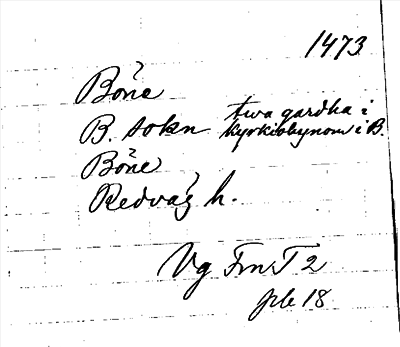 1473
Böne
B. sokn twa gardha i
kyrkiobynom i B.
Böne
Redväg h.
Vg FmT 2
18